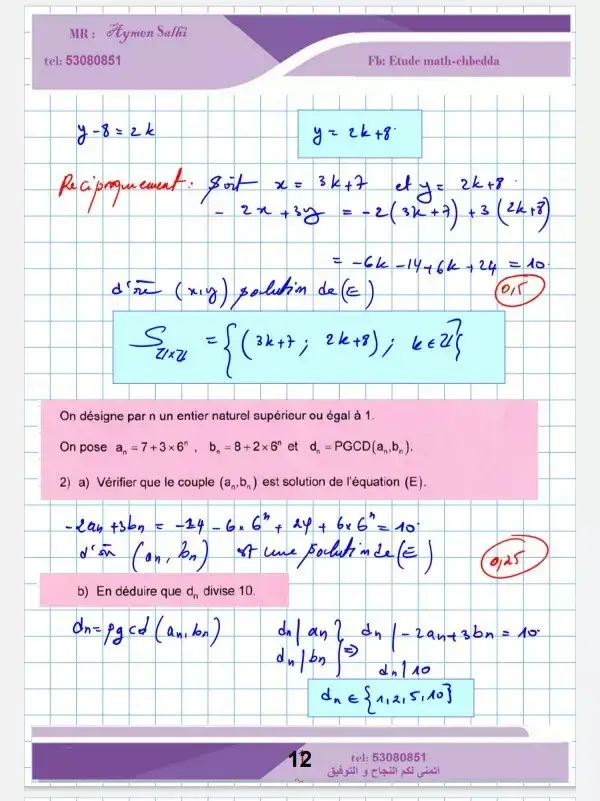 MR : Aymen Salhi
tel: 53080851
Fb: Etude math-chbedda
y - 8 = 2k
y = 2k+8
Réciproquement : Soit x = 3k+7 et y = 2k+8
- 2x + 3y = -2(3k+7) + 3(2k+8)
= -6k - 14 + 6k + 24 = 10
d'où (x,y) solution de (E)
0,5
S_{ZxZ} = {(3k+7 ; 2k+8) ; k ∈ Z}
On désigne par n un entier naturel supérieur ou égal à 1.
On pose aₙ = 7 + 3 × 6ⁿ , bₙ = 8 + 2 × 6ⁿ et dₙ = PGCD(aₙ,bₙ).
2) a) Vérifier que le couple (aₙ,bₙ) est solution de l'équation (E).
-2an + 3bn = -14 - 6×6ⁿ + 24 + 6×6ⁿ = 10
d'où (an, bn) est une solution de (E)
0,25
b) En déduire que dₙ divise 10.
dn = pgcd(an, bn)
dn | an } dn | -2an + 3bn = 10
dn | bn } ⇒
dn | 10
dn ∈ {1,2,5,10}
12
tel: 53080851
اتمنى لكم النجاح و التوفيق